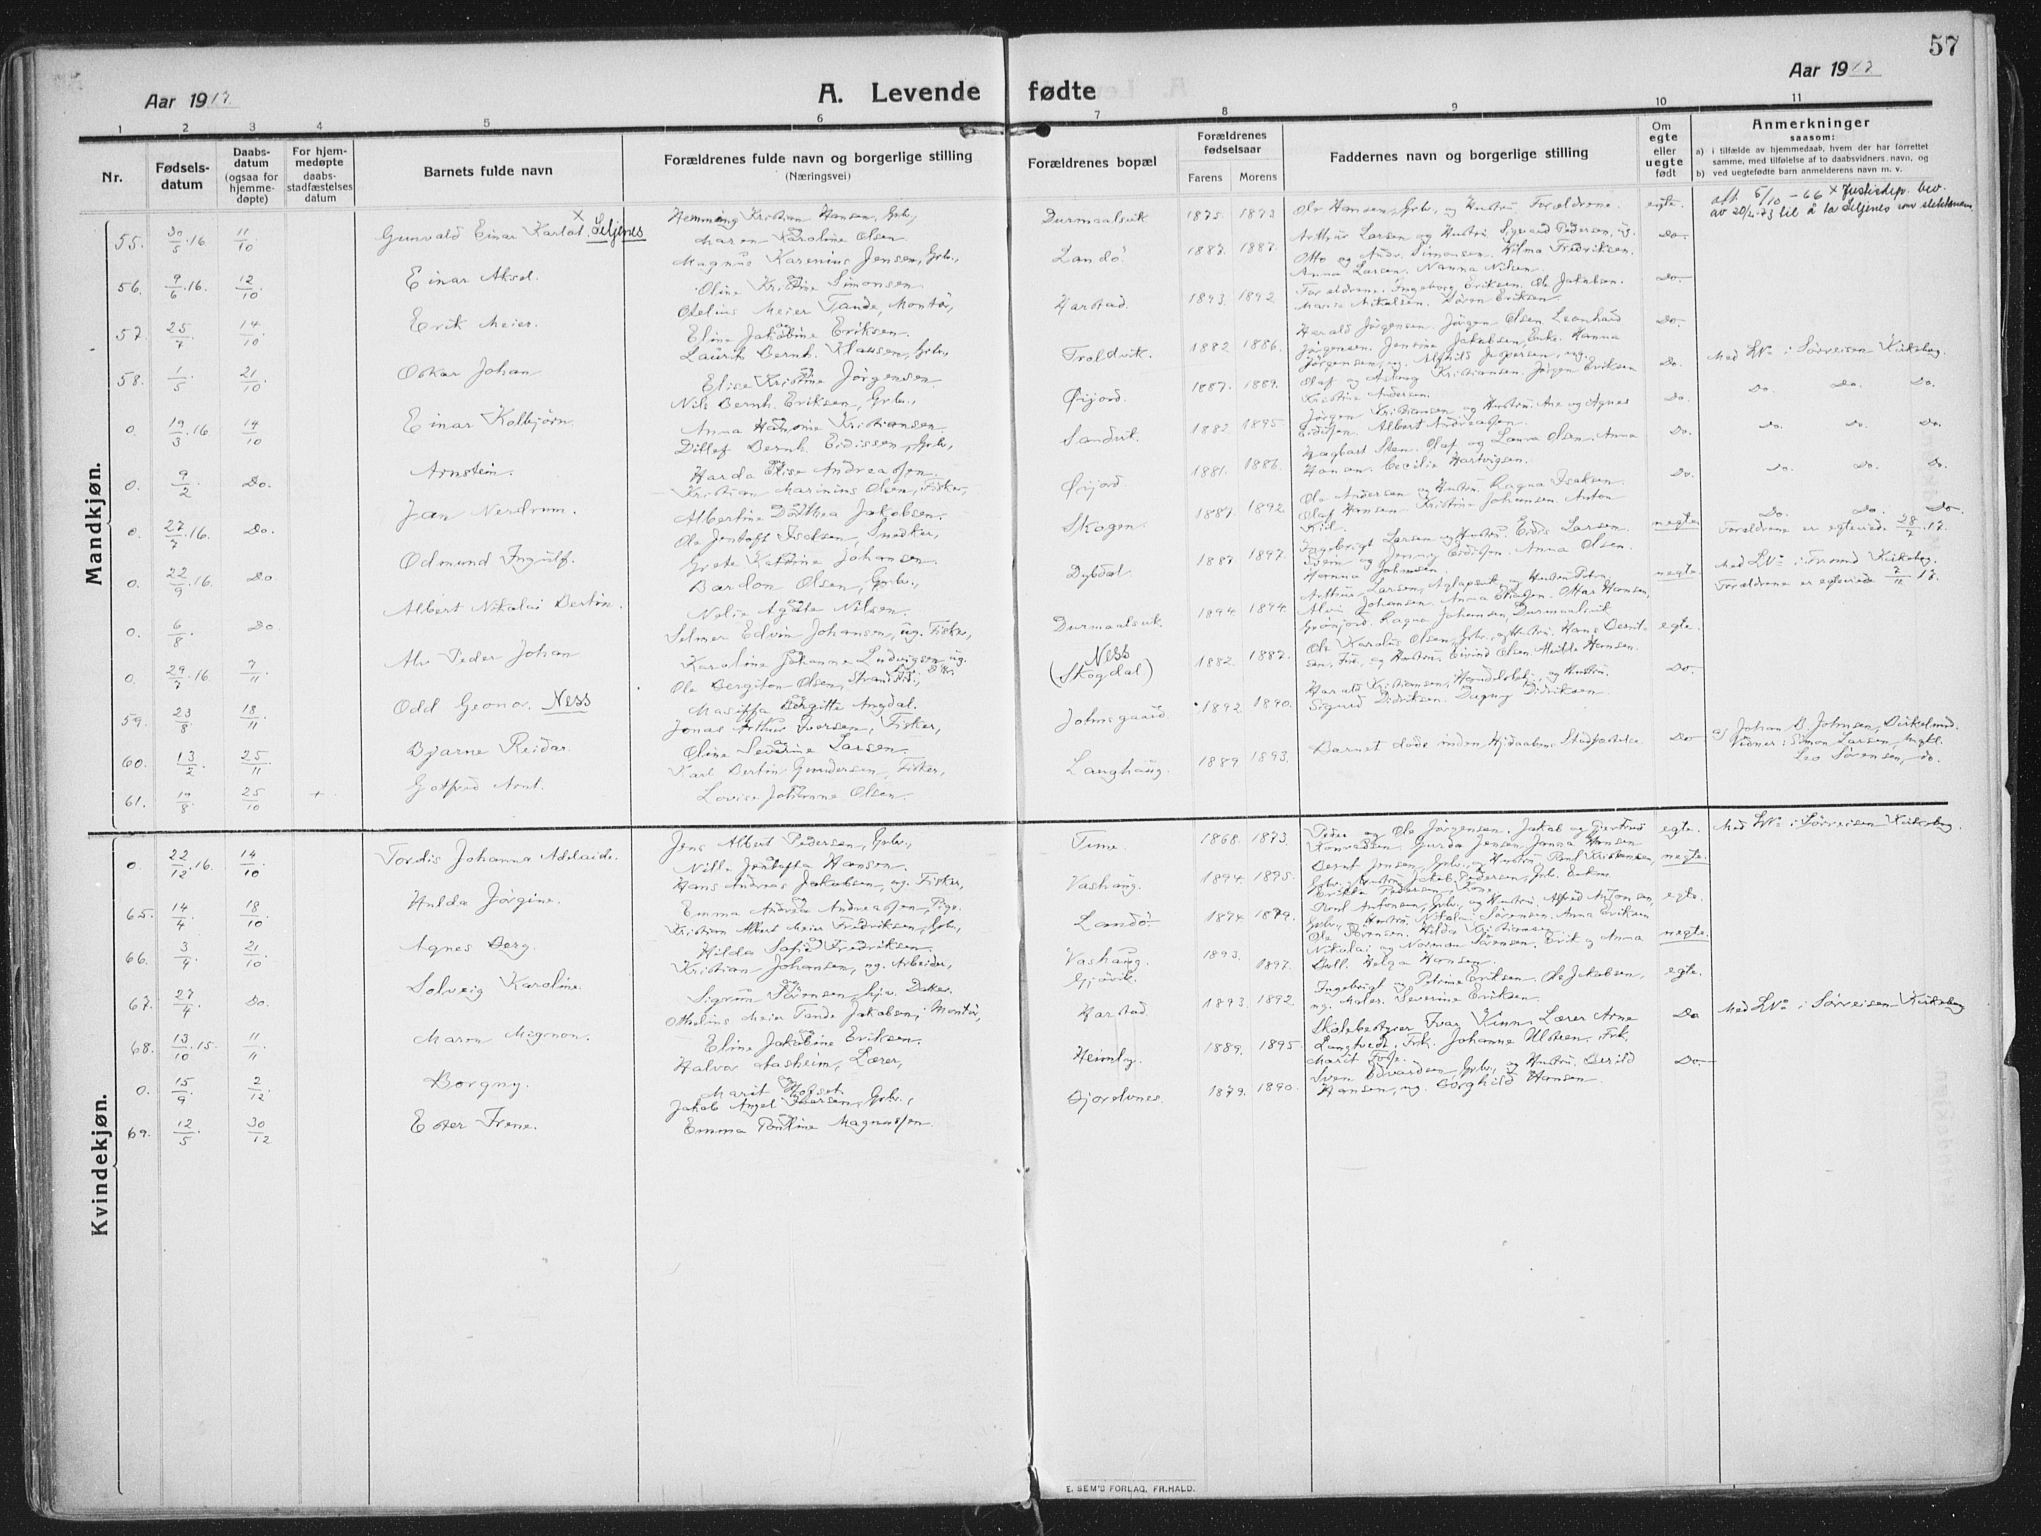 57
Aar 1917
A. Levende fødte
Aar 1917
1 2 3 4 5 6 7 8 9 10 11
Nr.
Fødsels-
datum
Daabs-
datum
(ogsaa for
hjemme-
døpte)
For hjem-
medøpte
daabs-
stadfæstelses
datum
Barnets fulde navn
Forældrenes fulde navn og borgerlige stilling
(Næringsvei)
Forældrenes bopæl
Forældrenes
fødselsaar
Farens Morens
Faddernes navn og borgerlige stilling
Om
egte
eller
uegte
født
Anmerkninger
saasom:
a) i tilfælde av hjemmedaab, hvem der har forrettet
samme, med tilføielse af to daabsvidners navn, og
b) ved uegtefødte barn anmelderens navn m. v.
Mandkjøn.
55. 30/5.16. 11/10 Gunvald Einar Karlot × Seljenes
Hemming Kristian Hansen, Grb.,
Maren Karoline Olsen.
Durmaalsvik 1875. 1893
Ole Hansen, Grb., og Hustru. Forældrene.
egte.
att 5/10 - 66 × Justisdep. bev.
av 20/2-73 til å ta Seljenes som slektsnavn
56. 9/6.16. 12/10 Einar Aksel.
Magnus Karenius Jensen, Grb.,
Oline Kristine Simonsen
Landö. 1887. 1887.
Arthur Larsen og Hustru. Sigvard Pedersen,
Otto og Andr. Simonsen. Hilma Fredriksen.
Anna Larsen. Nanna Nilsen.
Do.
57. 25/7 14/10 Erik Meier.
Otelius Meier Tande, Montör,
Eline Jakobine Eriksen.
Harstad. 1893. 1892
Forældrene. Ingeborg Eriksen. Ole Jakobsen.
Marie Mikalsen. Sören Eriksen.
Do.
58. 1/5 21/10 Oskar Johan
Laurits Bernh. Klausen, Grb.,
Elise Kristine Jörgensen.
Troldvik. 1882 1886.
Harald Jörgensen. Jörgen Olsen. Leonhard
Jörgensen. Jensine Jakobsen, Enke. Hanna
Jörgensen, ug. Alfhild Jespersen, ug.
Do.
Med Lno i Sørreisen Kirkebog.
0. 19/3.16 14/10 Einar Kolbjørn.
Nils Bernh. Eriksen, Grb.,
Anna Hansine Kristiansen.
Örjord. 1887. 1889.
Olaf og Aslaug Kristiansen. Jörgen Eriksen
Kristine Andersen.
Do.
Do. Do. Do.
0. 9/2. Do. Arnstein.
Ditlef Bernh. Eidissen, Grb.,
Harda Elise Andreassen.
Sandvik. 1882 1895.
Jörgen Kristiansen og Hustru. Ane og Agnes
Eidissen. Albert Andreassen.
Do.
Do. Do. Do.
0. 27/7.16. Do. Jan Nerdrum.
Kristian Marinius Olsen, Fisker,
Albertine Dorthea Jakobsen.
Örjord. 1881. 1886.
Hagbart Sten. Olaf og Laura Olsen. Anna
Hansen. Cecilie Hartvigsen.
Do.
Do. Do. Do.
0. 22/9.16. Do Odmund Ingulf.
Ole Jentoft Isaksen, Snedker,
Grete Katrine Johansen.
Skogen. 1887. 1892.
Ole Andersen og Hustru. Ragna Isaksen.
Olaf Hansen. Kristine Johansen. Anton
Kiil.
uegte.
Do. Do. Do.
Forældrene er egteviede 28/7 17.
0. 6/8. Do Albert Nikolai Bertin.
Bardon Olsen, Grb.,
Nelie Agate Nilsen.
Dybdal. 1887 1897.
Ingebrigt Larsen og Hustru. Eidis Larsen
Svein og Jenny Eidissen. Anna Olsen.
Hanna Johnsen.
uegte.
Med Lno i Tromö Kirkebog.
Forældrene er egteviede 2/11 17.
0. 29/7.16. 7/11 Alv Peder Johan
Selmer Edvin Johansen, ug. Fisker,
Karoline Johanne Ludvigsen ug.
Durmaalsvik. 1894 1894.
egte.
59. 23/8. 18/11 Odd Geono. Ness
Ole Bergiton Olsen,
Masiffa Bergitte Angdal.
Ness
(Skogdal) 1882. 1887.
Ole Karolus Olsen, Grb., og Hustru. Hans Bernt-
sen, Fis., og Hustru. Eivind Olsen. Hulda Hansen.
Do.
60. 13/2. 25/11 Bjarne Reidar.
Jonas Arthur Iversen, Fisker,
Oline Severine Larsen.
Johnsgaard 1892 1890.
Harald Kristiansen, Handelsbtj., og Hustru.
Sigurd Didriksen. Dagny Didriksen.
61. 19/8. 25/10 + Gotfred Arnt.
Karl Bertin Gundersen, Fisker,
Lovise Johanne Olsen.
Langhaug. 1889 1893.
Barnet døde inden Hjdaabens Stadfæstelse
Do
a) Johan B. Johnsen, Birkelund.
Vidner: Simon Larsen, Ungkl.
Leo Sørensen, do.
Kvindekjøn.
0. 22/12.16. 14/10. Tordis Johanna Adelaide.
Jens Albert Pedersen, Grb.,
Nille Jentofta Hansen.
Finne. 1868. 1873.
Peder og Ole Jörgensen. Jakob og Gjertrud
Konradsen. Gurda Jensen, Janna Hansen
egte.
Med Lno i Sørreisen Kirkebog.
65. 14/4. 18/10 Hulda Jörgine.
Hans Andreas Jakobsen, ug. Fisker,
Emma Andrea Andreassen, Pige.
Vashaug. 1894. 1895.
Bernt Jensen, Grb., og Hustru. Paul Kristensen,
Grb., Hustru. Jakob Pedersen, Grb.
Erikka Pedersen, Kone.
uegte.
66. 3/4 21/10 Agnes Berg.
Kristian Albert Meier Fredriksen, Grb.,
Hilda Sofie Fredriksen.
Landö 1874 1879.
Paul Antonsen, Grb., og Hustru. Alfred Antonsen,
Grb., Hustru. Nikolai Sörensen. Anna Eriksen
egte.
67. 27/4 Do. Solveig Karoline.
Kristian Johansen, ug. Arbeider,
Sigrun Sörensen, hjv. Datter.
Vashaug.
Gjövik. 1893. 1897.
Ole Sörensen. Hilda Kristiansen.
Nikolai og Norman Sörensen. Erik og Anna
Bull. Helga Hansen.
uegte.
68. 13/10.15. 11/11 Maron Mignon.
Othelius Meier Tande Jakobsen, Montör,
Eline Jakobine Eriksen.
Harstad. 1893. 1892.
Ingebrigt og Petrine Eriksen. Ole Jakobsen,
ug. Maler. Severine Eriksen.
egte.
0. 15/9. 2/12. Borgny.
Halvor Aasheim, Lærer,
Marit Hofset.
Heimly. 1889. 1895.
Skolebestyrer Ivar Kinn. Lærer Arne
Langtvedt. Frk. Johanne Ulstein. Frk.
Marit Foss.
Do
Med Lno i Sørreisen Kirkebog
69. 12/5. 30/12 Ester Irene.
Jakob Angel Ivarsen, Grb.,
Emma Pauline Magnussen.
Gjordvnes. 1879. 1890.
Sven Edvardsen, Grb., og Hustru. Berild
Hansen, ug. Borghild Hansen.
Do.
E. SEM'S FORLAG, FR.HALD.